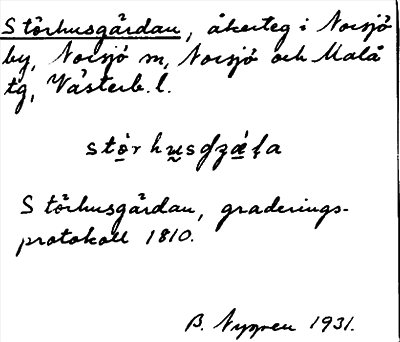 Störhusgårdan, åkerteg i Norsjö
by, Norsjö sn, Norsjö och Malå
tg, Västerb. l.
Störhusgårdan, graderings-
protokoll 1810.
B. Nygren 1931.